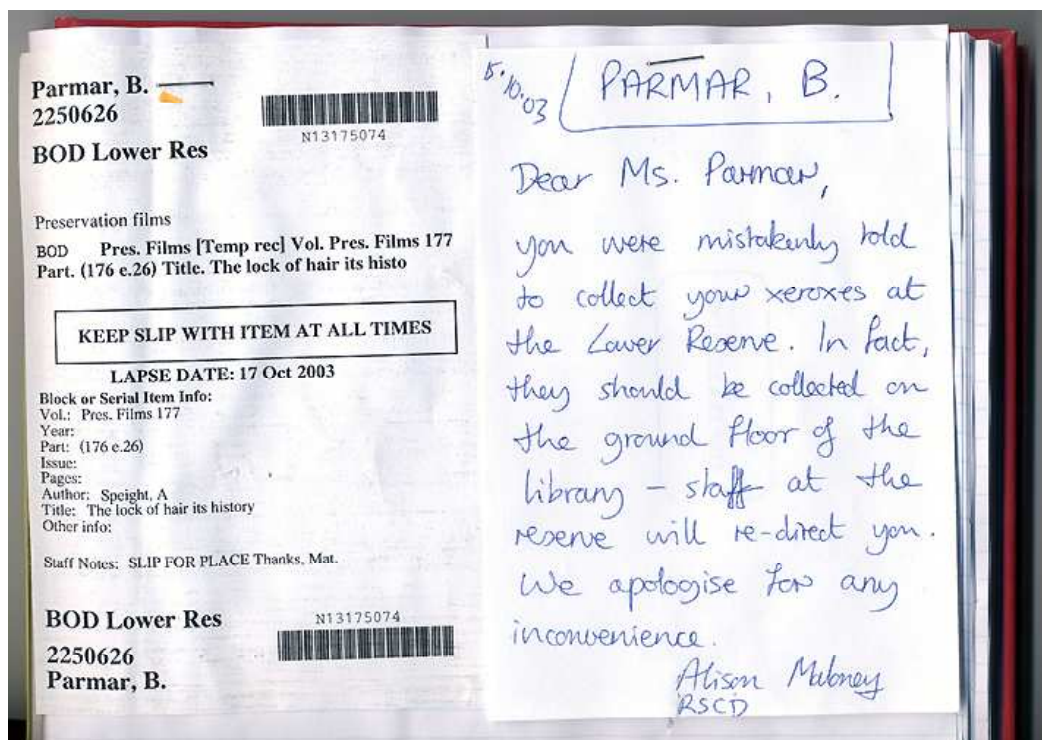 Parmar, B.
2250626
N13175074
BOD Lower Res
Preservation films
BOD Pres. Films [Temp rec] Vol. Pres. Films 177
Part. (176 e.26) Title. The lock of hair its histo
KEEP SLIP WITH ITEM AT ALL TIMES
LAPSE DATE: 17 Oct 2003
Block or Serial Item Info:
Vol.: Pres. Films 177
Year:
Part: (176 e.26)
Issue:
Pages:
Author: Speight, A
Title: The lock of hair its history
Other info:
Staff Notes: SLIP FOR PLACE Thanks, Mat.
BOD Lower Res
N13175074
2250626
Parmar, B.
5.10.03
PARMAR, B.
Dear Ms. Parmar,
you were mistakenly told
to collect your xeroxes at
the Lower Reserve. In fact,
they should be collected on
the ground floor of the
library – staff at the
reserve will re-direct you.
We apologise for any
inconvenience.
Alison Maloney
RSCD